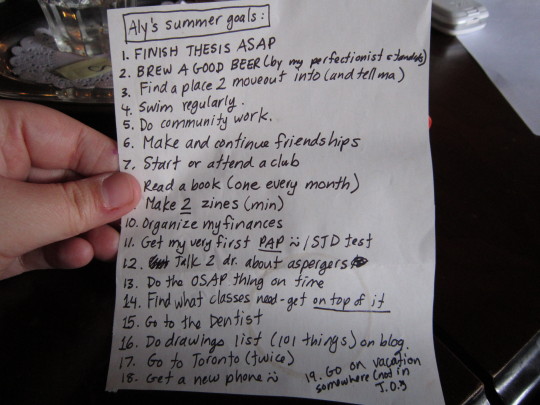 Aly's summer goals:
1. FINISH THESIS ASAP
2. BREW A GOOD BEER (by my perfectionist standards)
3. Find a place 2 moveout into (and tell ma)
4. Swim regularly.
5. Do community work.
6. Make and continue friendships
7. Start or attend a club
Read a book (one every month)
Make 2 zines (min)
10. Organize my finances
11. Get my very first PAP / STD test
12. Talk 2 dr. about aspergers
13. Do the OSAP thing on time
14. Find what classes need-get on top of it
15. Go to the Dentist
16. Do drawings list (101 things) on blog.
17. Go to Toronto (twice)
18. Get a new phone
19. Go on vacation
somewhere (not in
T.O.)